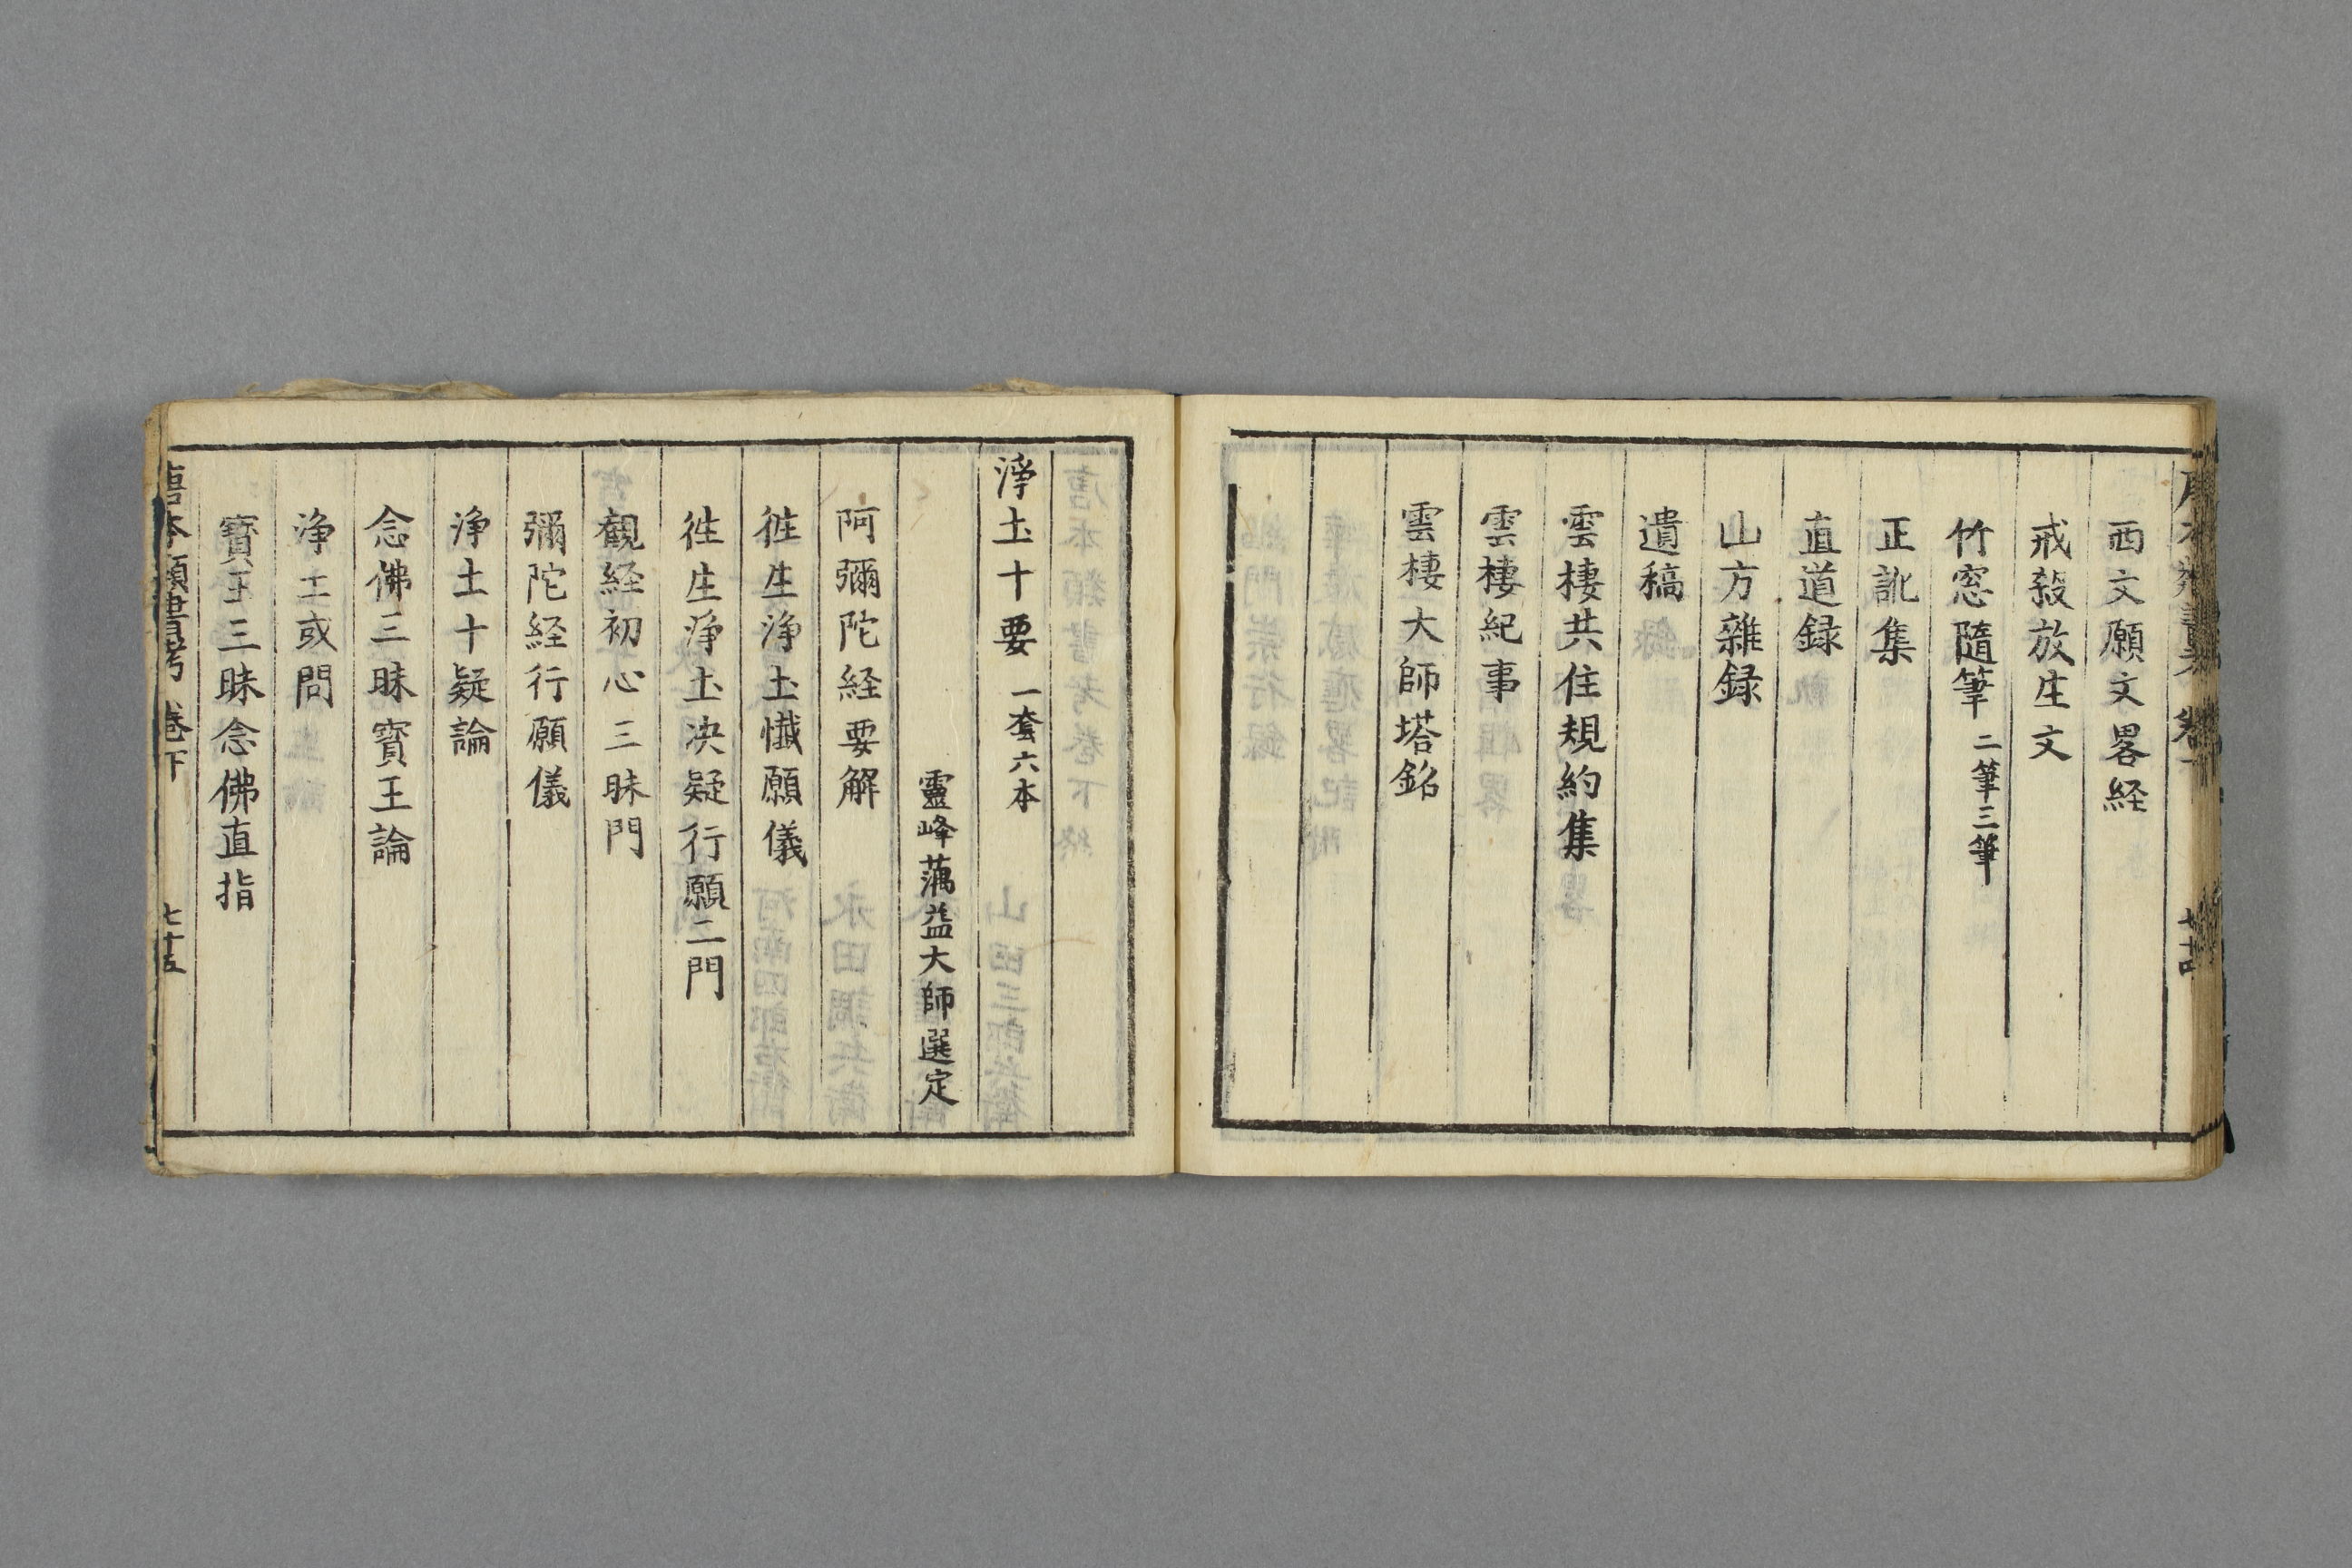 西文願文畧経
戒殺放生文
竹窓隨筆 二筆三筆
正訛集
直道録
山方雜録
遺稿
雲棲共住規約集
雲棲紀事
雲棲大師塔銘
淨土十要 一套六本
靈峰蕅益大師選定
阿彌陀経要解
徃生淨土懺願儀
徃生淨土决疑行願二門
觀経初心三昧門
彌陀経行願儀
淨土十疑論
念佛三昧寳王論
淨土或問
寳王三昧念佛直指
唐本類書考 卷下 七十五